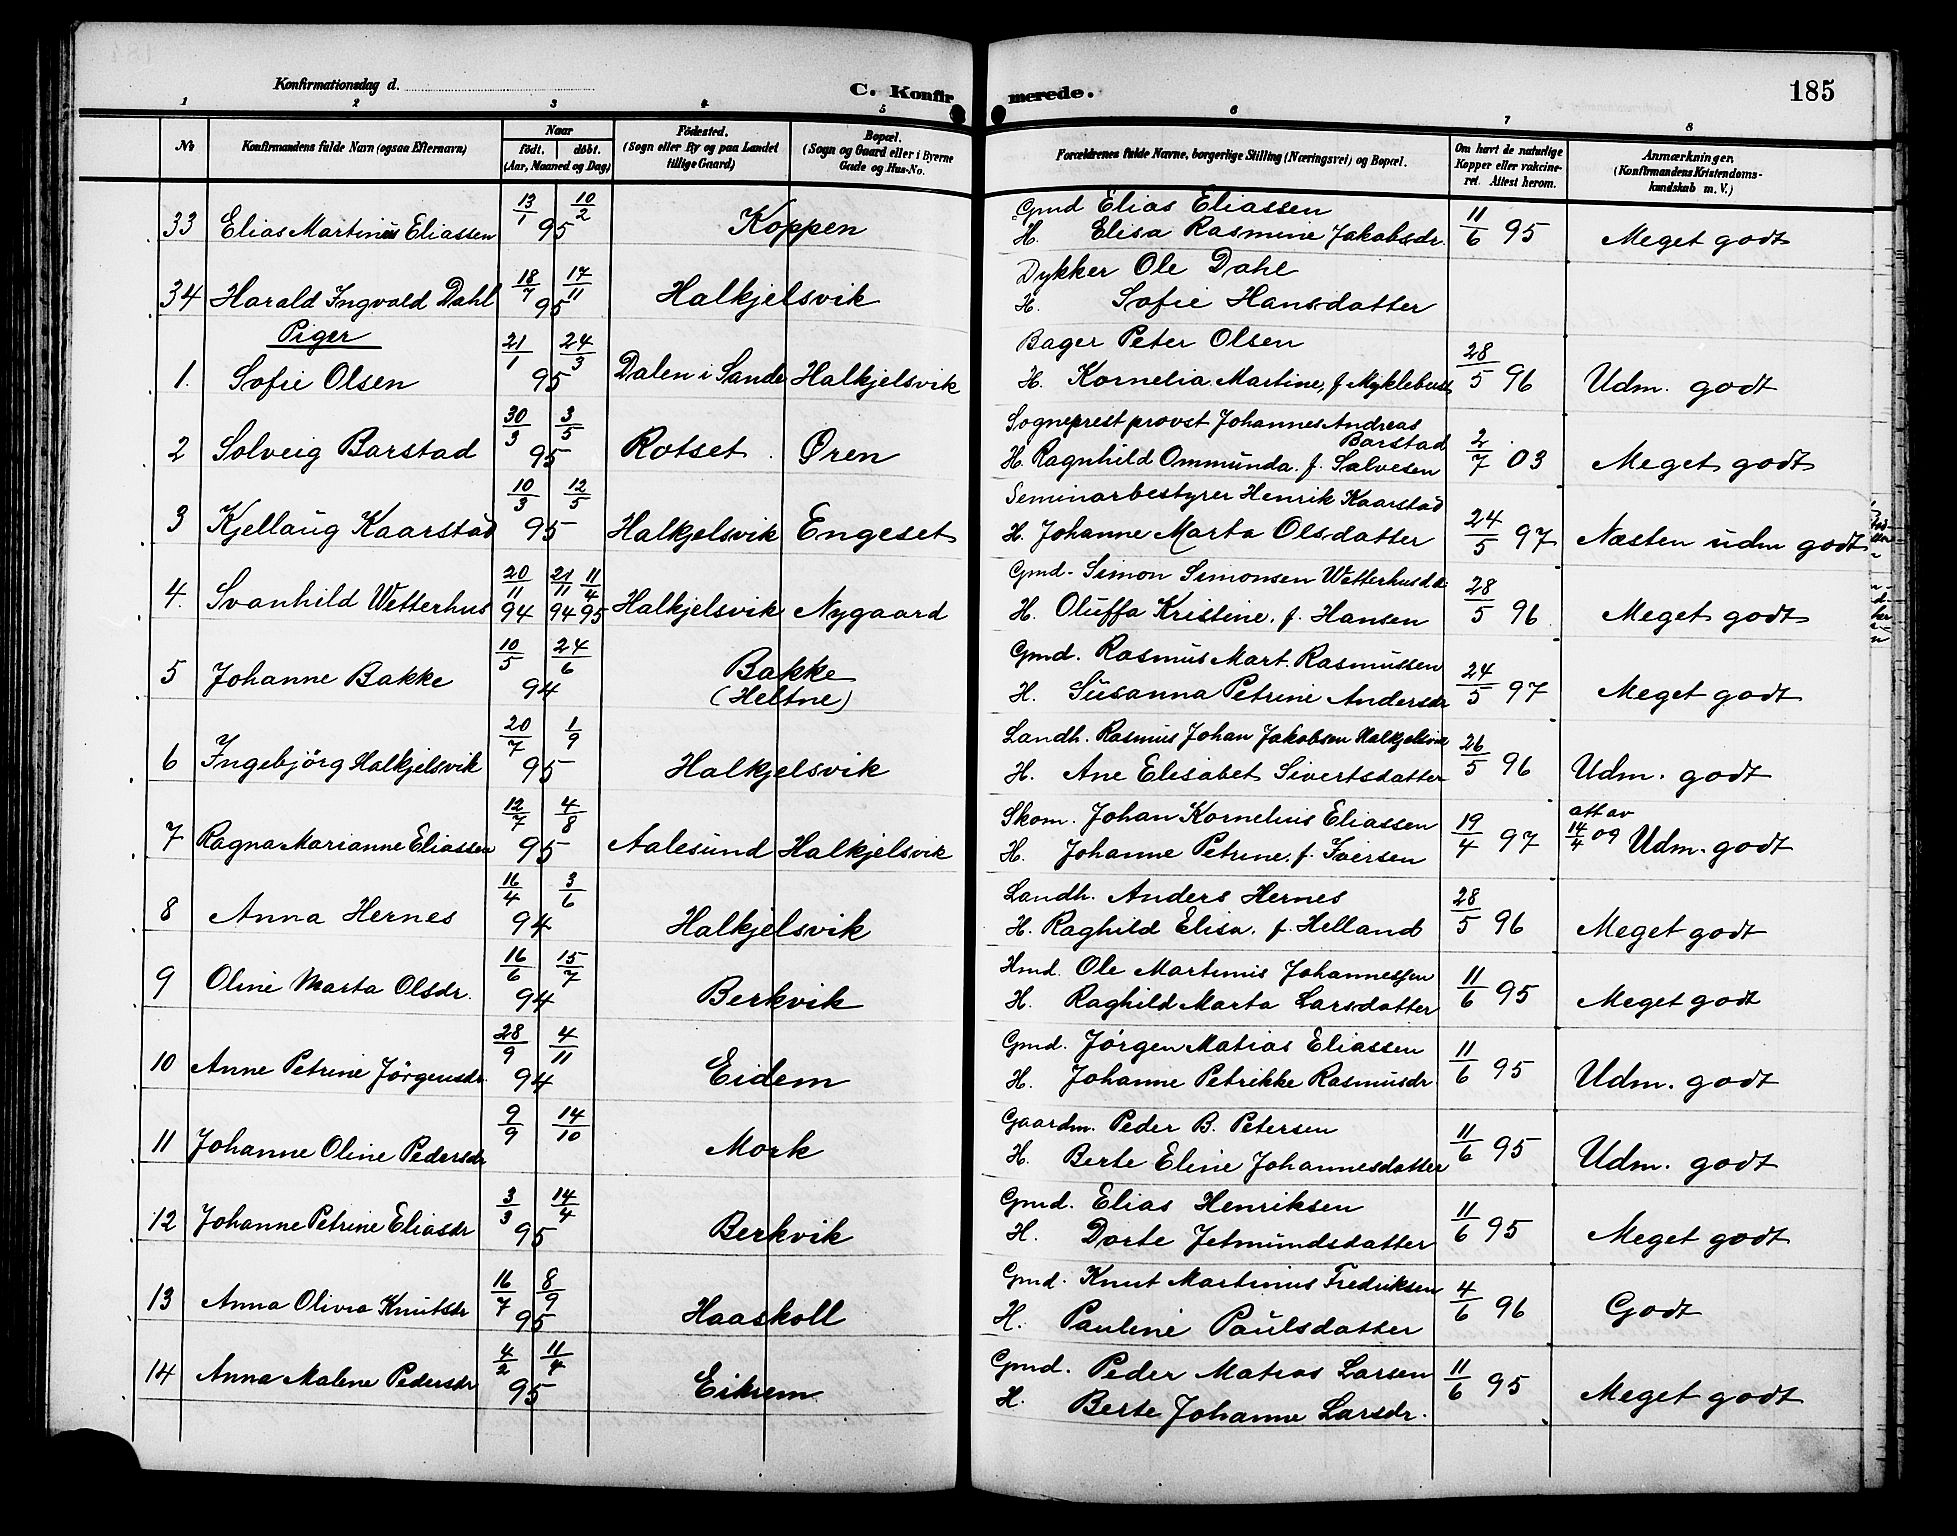 Konfirmationsdag d.
C. Konfirmerede.
185
1 2 3 4 5 6 7 8
No
Konfirmandens fulde Navn (ogsaa Efternavn)
Naar
født. døbt.
(Aar, Maaned og Dag)
Födested.
(Sogn eller By og paa Landet
tillige Gaard)
Bopæl.
(Sogn og Gaard eller i Byerne
Gade og Hus-No.
Forældrenes fulde Navne, borgerlige Stilling (Næringsvei) og Bopæl.
Om havt de naturlige
Kopper eller vakcine-
ret. Attest herom.
Anmærkninger.
(Konfirmandens Kristendoms-
kundskab m. V.)
33 Elias Martinius Eliassen 13/1 10/2 95 Koppen
Gmd Elias Eliassen
H. Elisa Rasmine Jakobsdr. 11/6 95 Meget godt
34 Harald Ingvald Dahl 18/7 17/11 95 Halkjelsvik
Dykker Ole Dahl
H. Sofie Hansdatter
Piger
1. Sofie Olsen 21/1 24/3 95 Dalen i Sande Halkjelsvik
Bager Peter Olsen
H. Kornelia Martine, f. Myklebust 28/5 96 Udm. godt
2 Solveig Barstad 30/3 3/5 95 Rotset Øren
Sogneprest provst Johannes Andreas
Barstad
H. Ragnhild Ommunda. f. Salvesen 2/7 03 Meget godt
3 Kjellaug Kaarstad 10/3 12/5 95 Halkjelsvik Engeset
Seminarbestyrer Henrik Kaarstad
H. Johanne Marta Olsdatter 24/5 97 Næsten udm godt
4. Svanhild Wetterhus 20/11 94 21/11 94 11/4 95 Halkjelsvik Nygaard
Gmd. Simon Simonsen Wetterhus
H. Oluffa Kristine. f. Hansen 28/5 96 Meget godt
5 Johanne Bakke 10/5 24/6 94 Bakke
(Heltne)
Gmd. Rasmus Mart. Rasmussen
H. Susanna Petrine Andersdr 24/5 97 Meget godt
6 Ingebjörg Halkjelsvik 20/7 1/9 95 Halkjelsvik
Landh. Rasmus Johan Jakobsen Halkjelsvik
H. Ane Elisabet Sivertsdatter 26/5 96 Udm. godt
7 Ragna Marianne Eliassen 12/7 4/8 95 Aalesund Halkjelsvik
Skom. Johan Kornelius Eliassen
H. Johanne Petrine, f. Iversen 19/4 97 att av 14/4 09 Udm. godt
8 Anna Hernes 16/4 3/6 94 Halkjelsvik
Landh. Anders Hernes
H. Raghild Elisa. f. Helland 28/5 96 Meget godt
9 Oline Marta Olsdr. 16/6 15/7 94 Berkvik
Hmd. Ole Martinus Johannessen
H. Raghild Marta Larsdatter 11/6 95 Meget godt
10 Anne Petrine Jörgensdr. 28/9 4/11 94 Eidem
Gmd. Jörgen Matias Eliassen
H. Johanne Petrikke Rasmusdr. 11/6 95 Udm. godt
11 Johanne Oline Pedersdr 9/9 14/10 Mork
Gaardm. Peder B. Petersen
H. Berte Eline Johannesdatter 11/6 95 Udm. godt
12 Johanne Petrine Eliasdr 3/3 14/4 95 Berkvik
Gmd. Elias Henriksen
H. Dorte Jetmundsdatter 11/6 95 Meget godt
13 Anna Olivia Knutsdr 16/7 8/9 95 Haaskoll
Gmd. Knut Martinus Fredriksen
H. Pauline Paulsdatter 4/6 96 Godt
14 Anna Malene Pedersdr 4/2 11/4 95 Eikrem
Gmd. Peder Matias Larsen
H. Berte Johanne Larsdr. 11/6 95 Meget godt